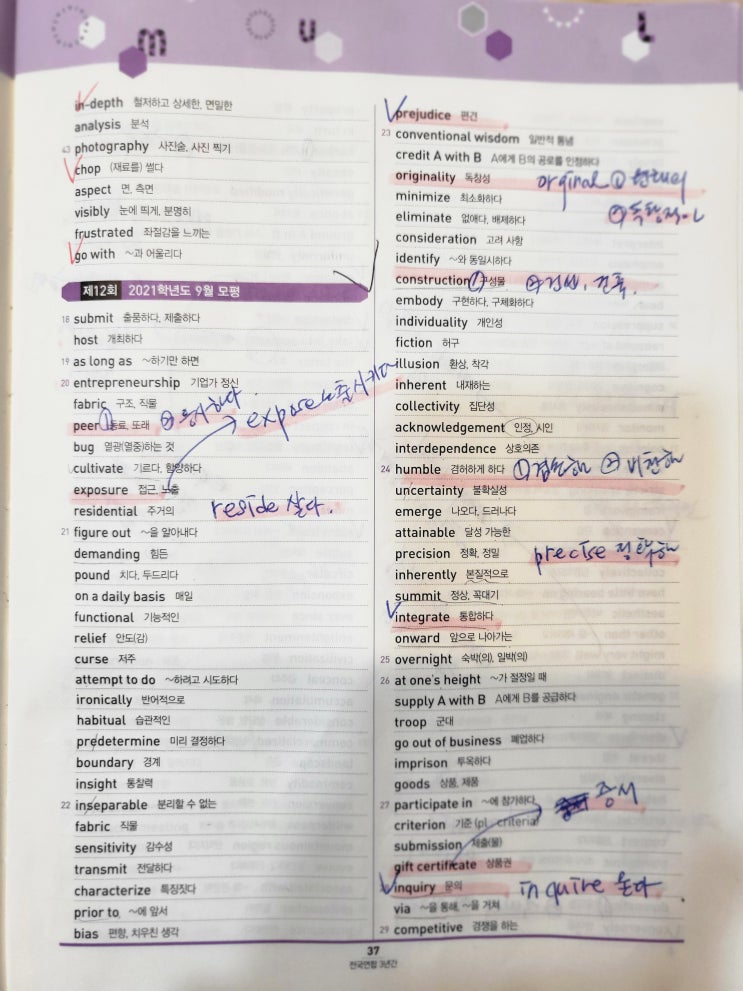 m u L
in-depth 철저하고 상세한, 면밀한
analysis 분석
43 photography 사진술, 사진 찍기
chop (재료를) 썰다
aspect 면, 측면
visibly 눈에 띄게, 분명히
frustrated 좌절감을 느끼는
go with ~과 어울리다
제12회 2021학년도 9월 모평
18 submit 출품하다, 제출하다
host 개최하다
19 as long as ~하기만 하면
20 entrepreneurship 기업가 정신
fabric 구조, 직물
peer ① 동료, 또래 ② 응시하다
bug 열광(열중)하는 것
cultivate 기르다, 함양하다
exposure 접근, 노출 → expose 노출시키다
residential 주거의 reside 살다.
21 figure out ~을 알아내다
demanding 힘든
pound 치다, 두드리다
on a daily basis 매일
functional 기능적인
relief 안도(감)
curse 저주
attempt to do ~하려고 시도하다
ironically 반어적으로
habitual 습관적인
predetermine 미리 결정하다
boundary 경계
insight 통찰력
22 inseparable 분리할 수 없는
fabric 직물
sensitivity 감수성
transmit 전달하다
characterize 특징짓다
prior to ~에 앞서
bias 편향, 치우친 생각
prejudice 편견
23 conventional wisdom 일반적 통념
credit A with B A에게 B의 공로를 인정하다
originality 독창성 orginal ① ②
minimize 최소화하다
eliminate 없애다, 배제하다
consideration 고려 사항
identify ~와 동일시하다
construction ① 구성물 ② 건설, 건축.
embody 구현하다, 구체화하다
individuality 개인성
fiction 허구
illusion 환상, 착각
inherent 내재하는
collectivity 집단성
acknowledgement 인정, 시인
interdependence 상호의존
24 humble 겸허하게 하다 ① 겸손한 ② 비천한
uncertainty 불확실성
emerge 나오다, 드러나다
attainable 달성 가능한
precision 정확, 정밀 precise 정확한
inherently 본질적으로
summit 정상, 꼭대기
integrate 통합하다
onward 앞으로 나아가는
25 overnight 숙박(의), 일박(의)
26 at one's height ~가 절정일 때
supply A with B A에게 B를 공급하다
troop 군대
go out of business 폐업하다
imprison 투옥하다
goods 상품, 제품
27 participate in ~에 참가하다
criterion 기준 (pl. criteria)
submission 제출(물)
gift certificate 상품권 → 증서
inquiry 문의 inquire 묻다
via ~을 통해, ~을 거쳐
29 competitive 경쟁을 하는
37
전국연합 3년간